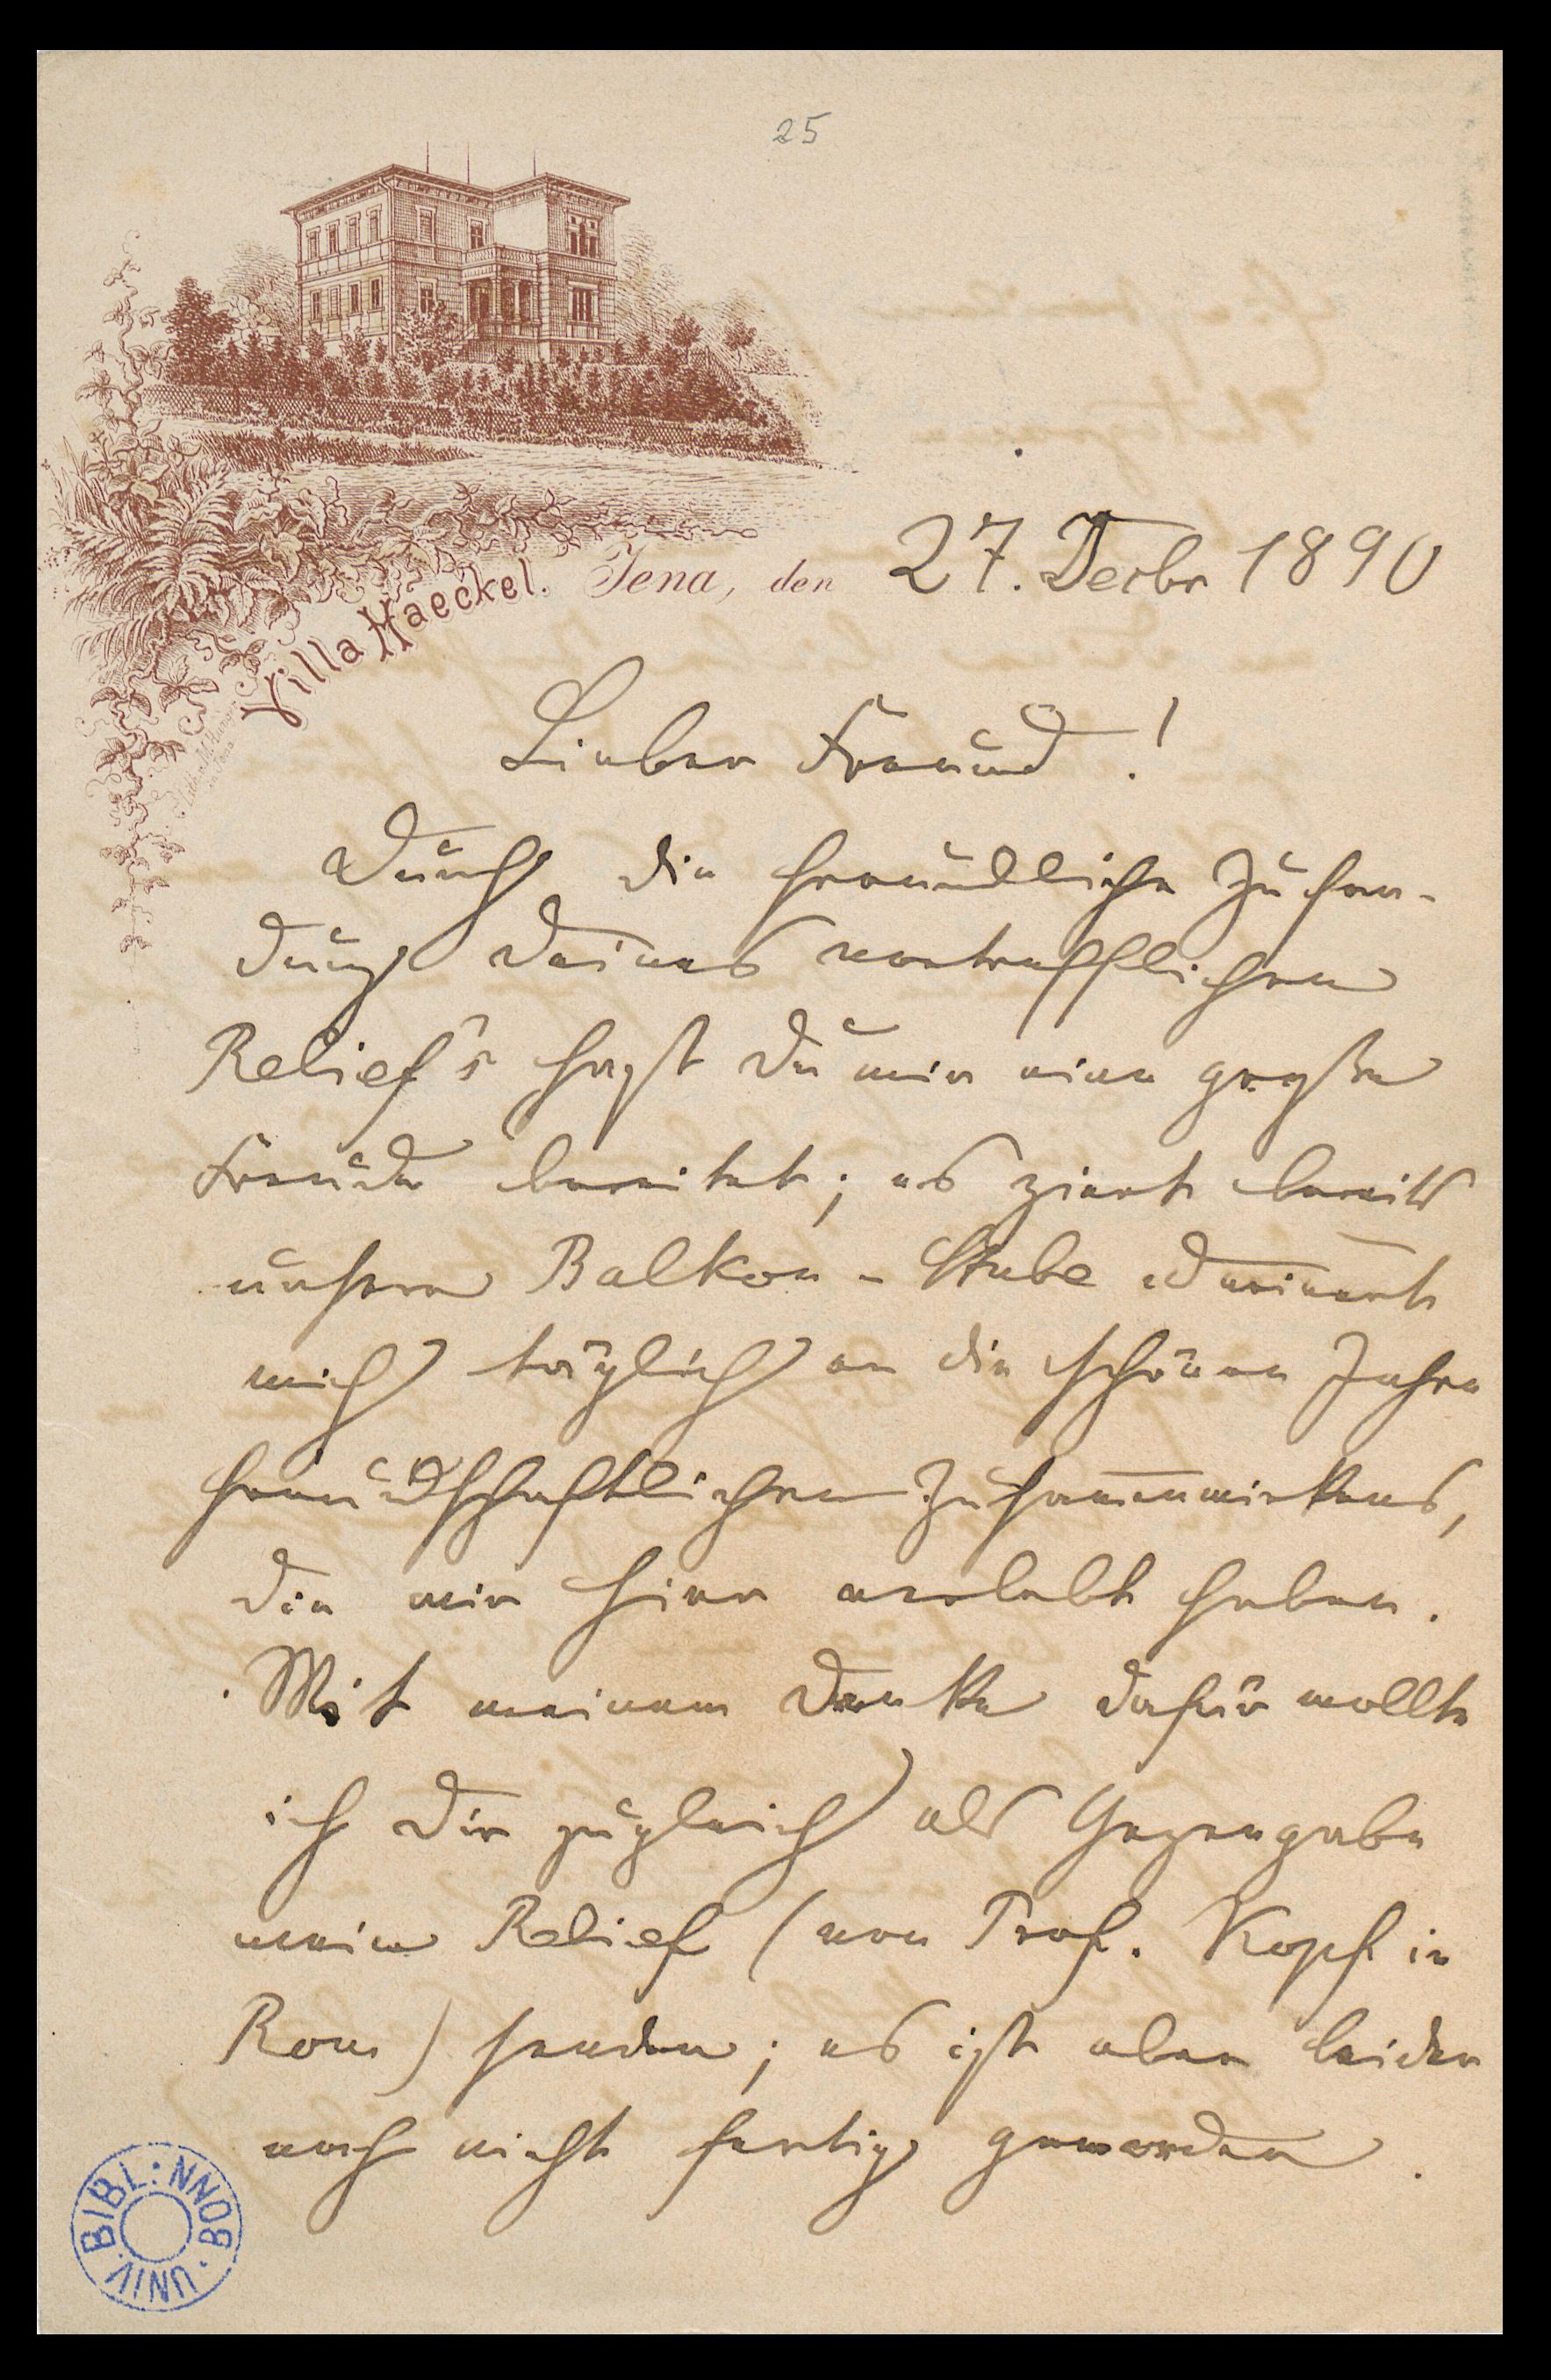 25
Villa Haeckel. Jena, den 27. Decbr 1890
Lieber Freund!
Durch die freundliche Zusen-
dung Deines vortrefflichen
Relief's hast Du mir eine große
Freude bereitet; es ziert bereits
unsere Balkon-Stube & erinnert
mich täglich an die schönen Jahre
freundschaftlichen Zusammenwirkens,
die wir hier verlebt haben.
Mit meinem Danke dafür wollte
ich Dir zugleich als Gegengabe
mein Relief (von Prof. Kopf in
Rom) senden; es ist aber leider
noch nicht fertig geworden.
UNIV. BIBL: BONN.